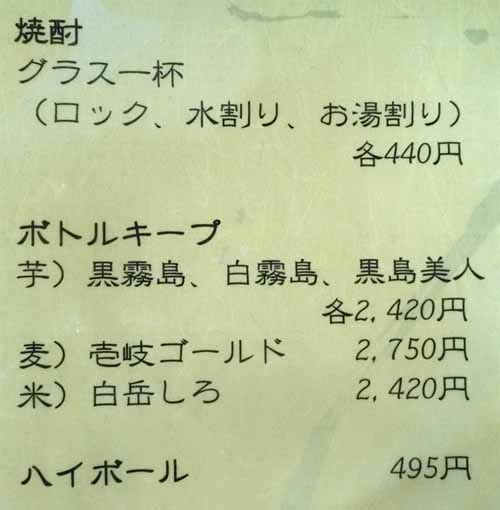 焼酎
グラス一杯
（ロック、水割り、お湯割り）
各440円
ボトルキープ
芋）黒霧島、白霧島、黒島美人
各2,420円
麦）壱岐ゴールド 2,750円
米）白岳しろ 2,420円
ハイボール 495円